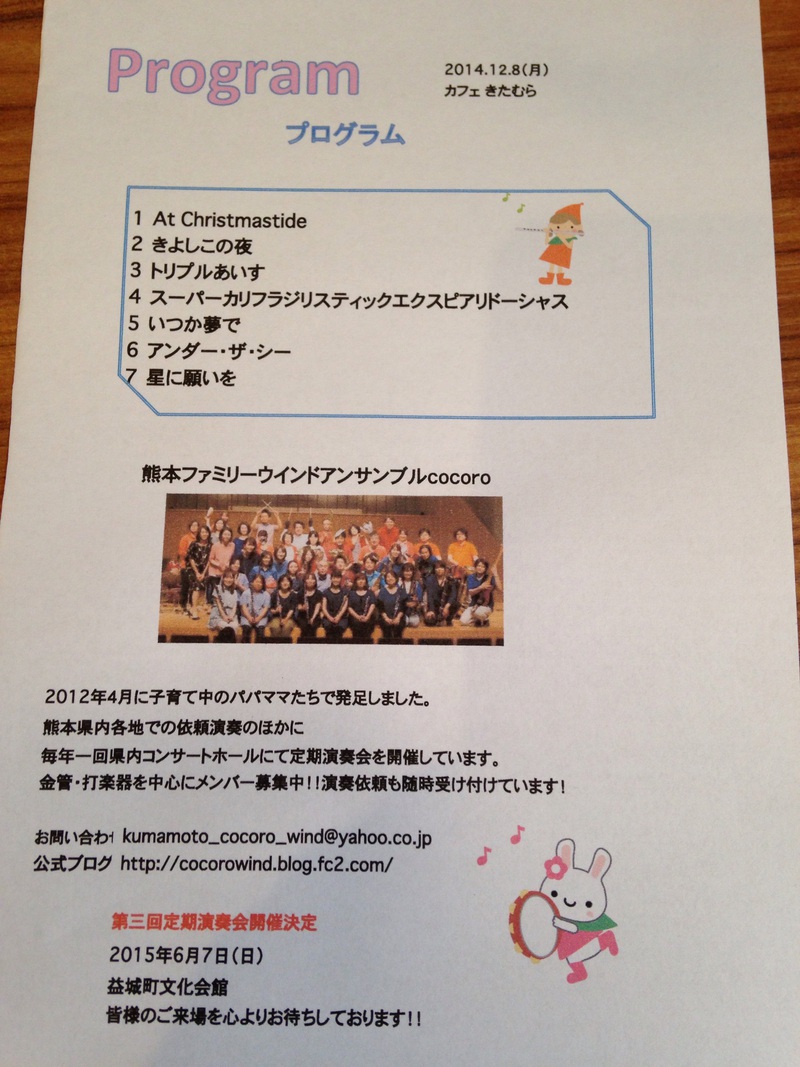 Program
2014.12.8(月)
カフェ きたむら
プログラム
1 At Christmastide
2 きよしこの夜
3 トリプルあいす
4 スーパーカリフラジリスティックエクスピアリドーシャス
5 いつか夢で
6 アンダー・ザ・シー
7 星に願いを
熊本ファミリーウインドアンサンブルcocoro
2012年4月に子育て中のパパママたちで発足しました。
熊本県内各地での依頼演奏のほかに
毎年一回県内コンサートホールにて定期演奏会を開催しています。
金管・打楽器を中心にメンバー募集中!!演奏依頼も随時受け付けています!
お問い合わ kumamoto_cocoro_wind@yahoo.co.jp
公式ブログ http://cocorowind.blog.fc2.com/
第三回定期演奏会開催決定
2015年6月7日(日)
益城町文化会館
皆様のご来場を心よりお待ちしております!!